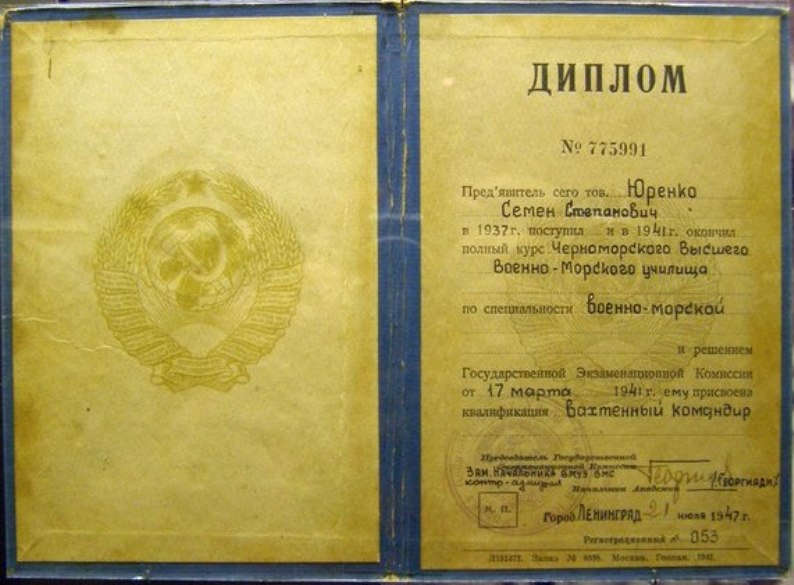 ДИПЛОМ
№ 775991
Пред'явитель сего тов. Юренко
Семен Степанович
в 1937г. поступил и в 1941г. окончил
полный курс Черноморского Высшего
Военно-Морского училища
по специальности военно-морской
и решением
Государственной Экзаменационной Комиссии
от 17 марта 1941г. ему присвоена
квалификация вахтенный командир
Председатель Государственной
Экзаменационной Комиссии
Зам. Начальника ВМУЗ ВМС
контр-адмирал
Начальник Академии
/Георгиади/
М. П.
Город Ленинград 21 июля 1947г.
Регистрационный № 053
Заказ № Москва. Гознак. 1941.